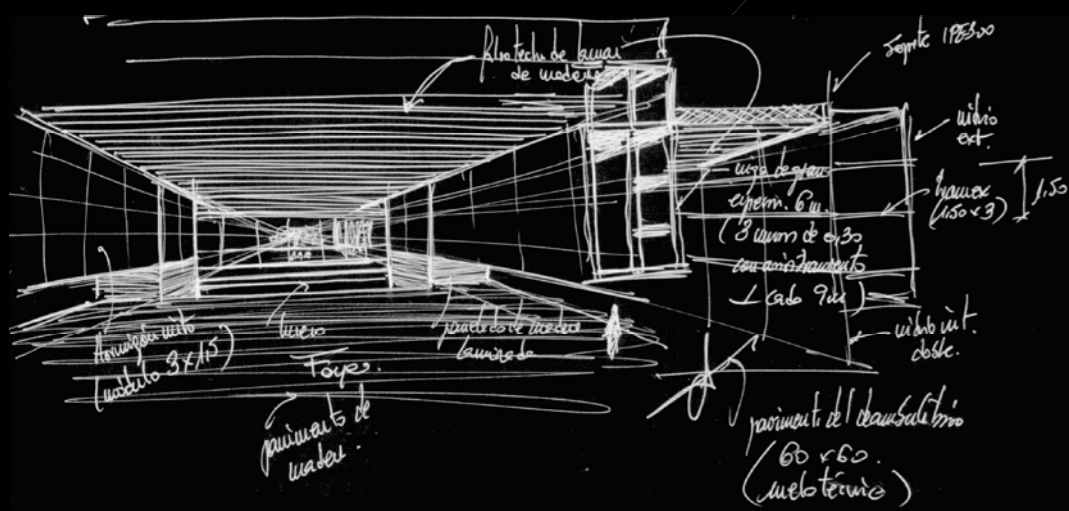 falso techo de lamas
de madera
soporte IPE300
vidrio
ext.
tramex
(1.50 x 3)
1,50
muro de gran
espesor. 6 m.
(3 muros de 0,30
con arriostramiento
⊥ cada 9m)
vidrio int.
doble.
Hormigón visto
(módulo 3 x 1,5)
hueco
Foyer.
panelado de madera
laminada
pavimento de
madera.
pavimento del deambulatorio
(60 x 60.
suelo técnico)